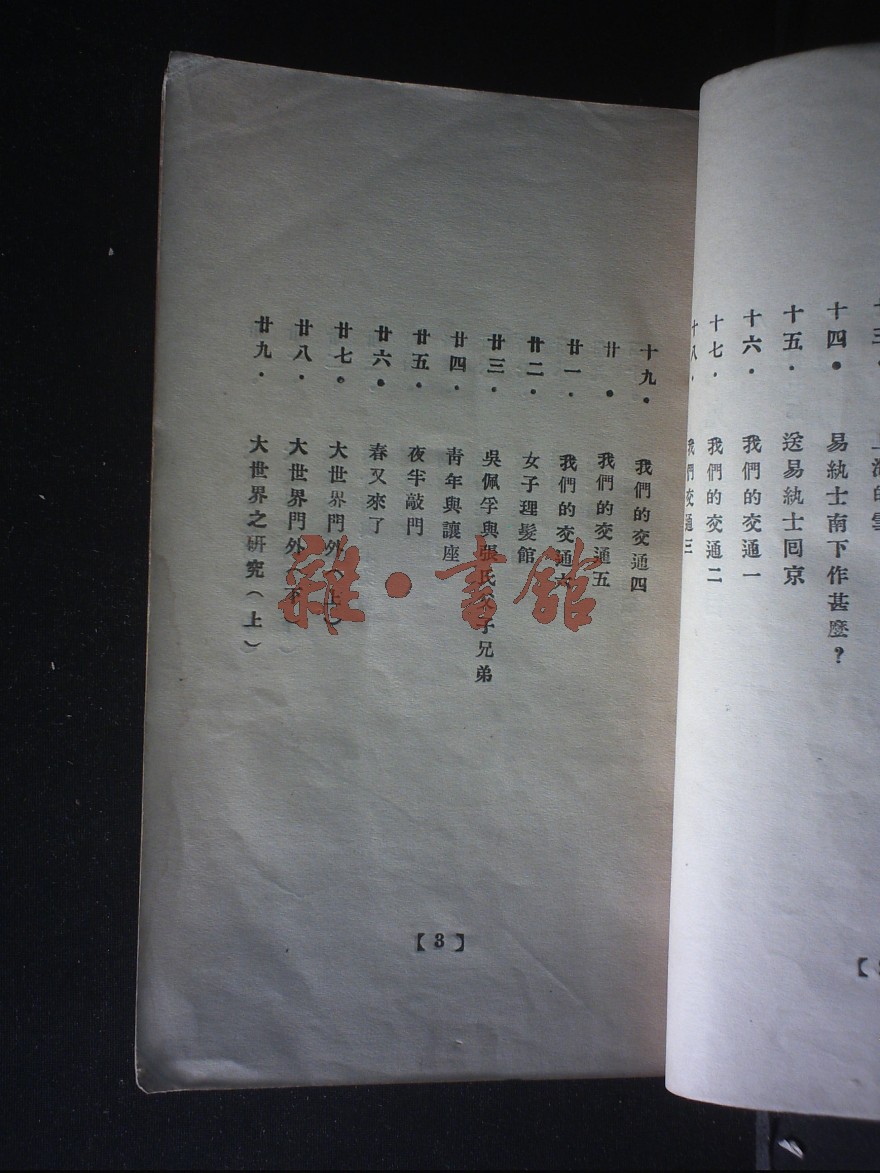 十四．　易紈士南下作甚麼？
十五．　送易紈士囘京
十六．　我們的交通一
十七．　我們的交通二
十八．　我們交通三
十九．　我們的交通四
廿．　我們的交通五
廿一．　我們的交通六
廿二．　女子理髮館
廿三．　吳佩孚與張氏父子兄弟
廿四．　青年與讓座
廿五．　夜半敲門
廿六．　春又來了
廿七．　大世界門外（上）
廿八．　大世界門外（下）
廿九．　大世界之研究（上）
【3】
雜・書館